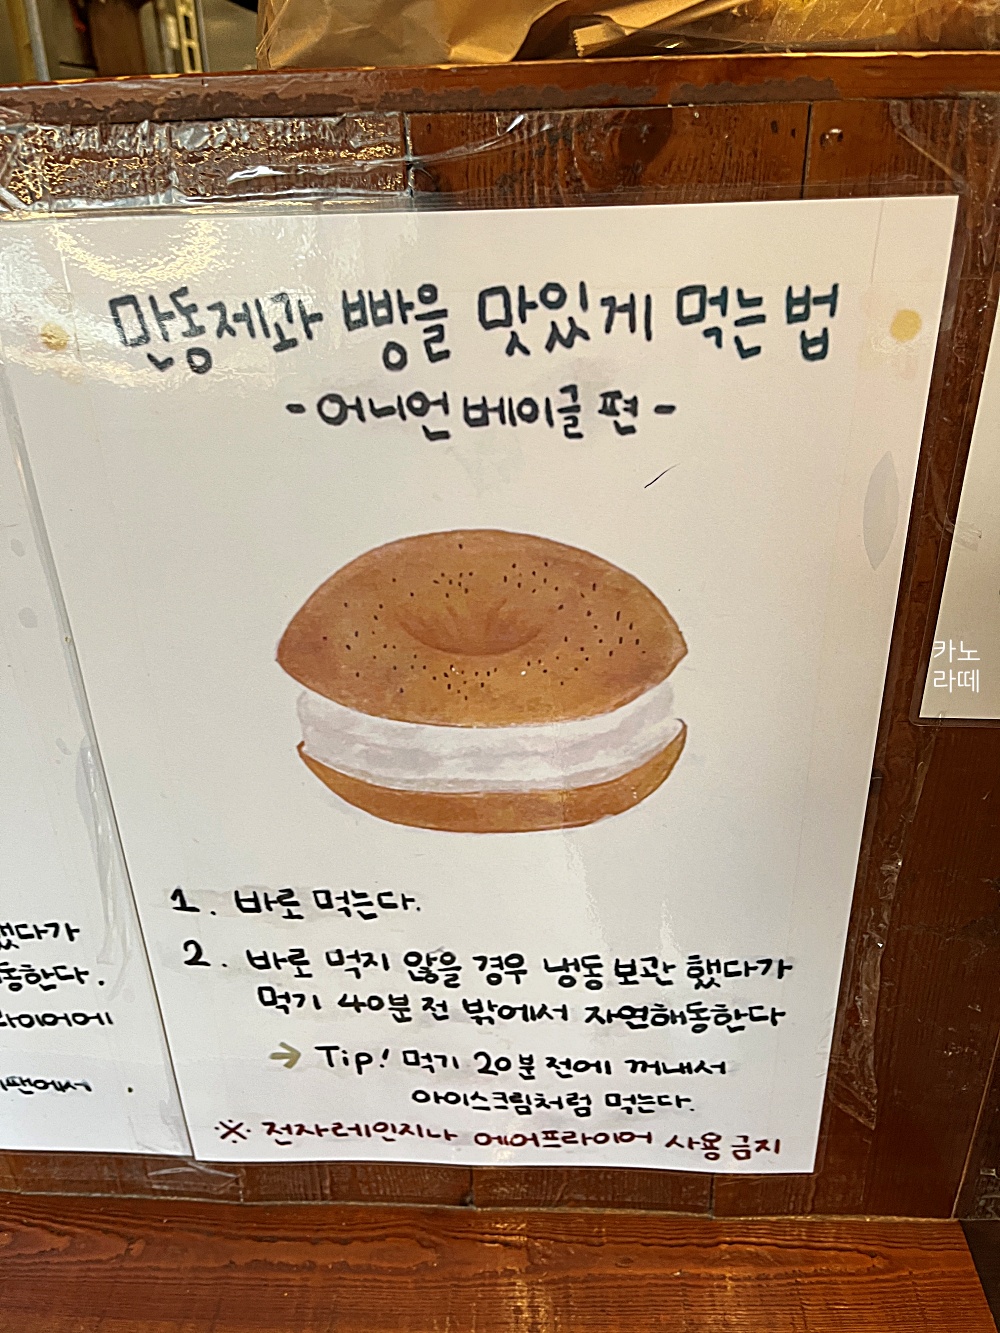 만동제과 빵을 맛있게 먹는 법
- 어니언 베이글 편 -
1. 바로 먹는다.
2. 바로 먹지 않을 경우 냉동 보관 했다가
먹기 40분 전 밖에서 자연해동한다
→ Tip! 먹기 20분 전에 꺼내서
아이스크림처럼 먹는다.
※ 전자레인지나 에어프라이어 사용 금지
했다가
동한다.
라이어에
팬에서
카노
라떼